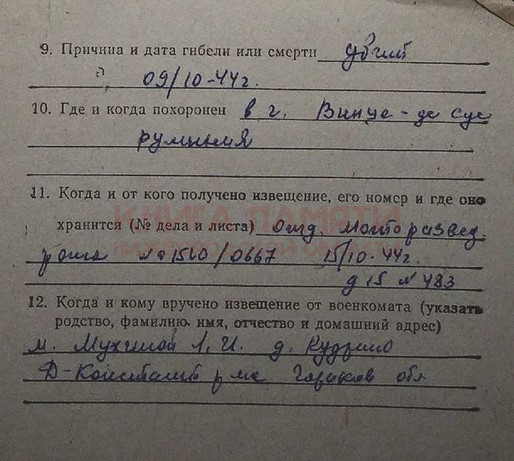 9. Причина и дата гибели или смерти убит
09/10-44г.
10. Где и когда похоронен в г. Винце-де Сус
Румыния
11. Когда и от кого получено извещение, его номер и где оно
КНИГА ПАМЯТИ
хранится (№ дела и листа) Отд. Моторазвед
рота №01510/0667 15/10-44г.
д 15 № 483
12. Когда и кому вручено извещение от военкомата (указать
родство, фамилию, имя, отчество и домашний адрес)
м. Мухиной Л. И. д.
Д-Констант р-на Горьков обл